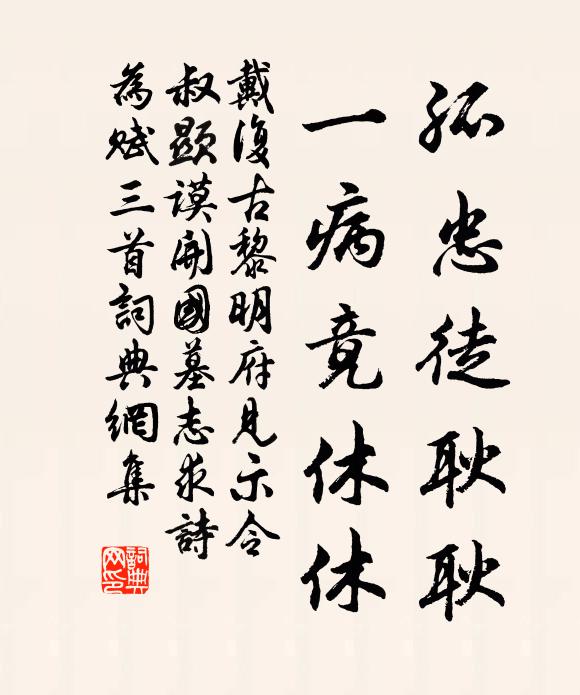 孤忠徒耿耿
一病竟休休
戴復古黎明府見示令
叔顯謨開國墓志求詩
為賦三首詞典網集
詞典网印